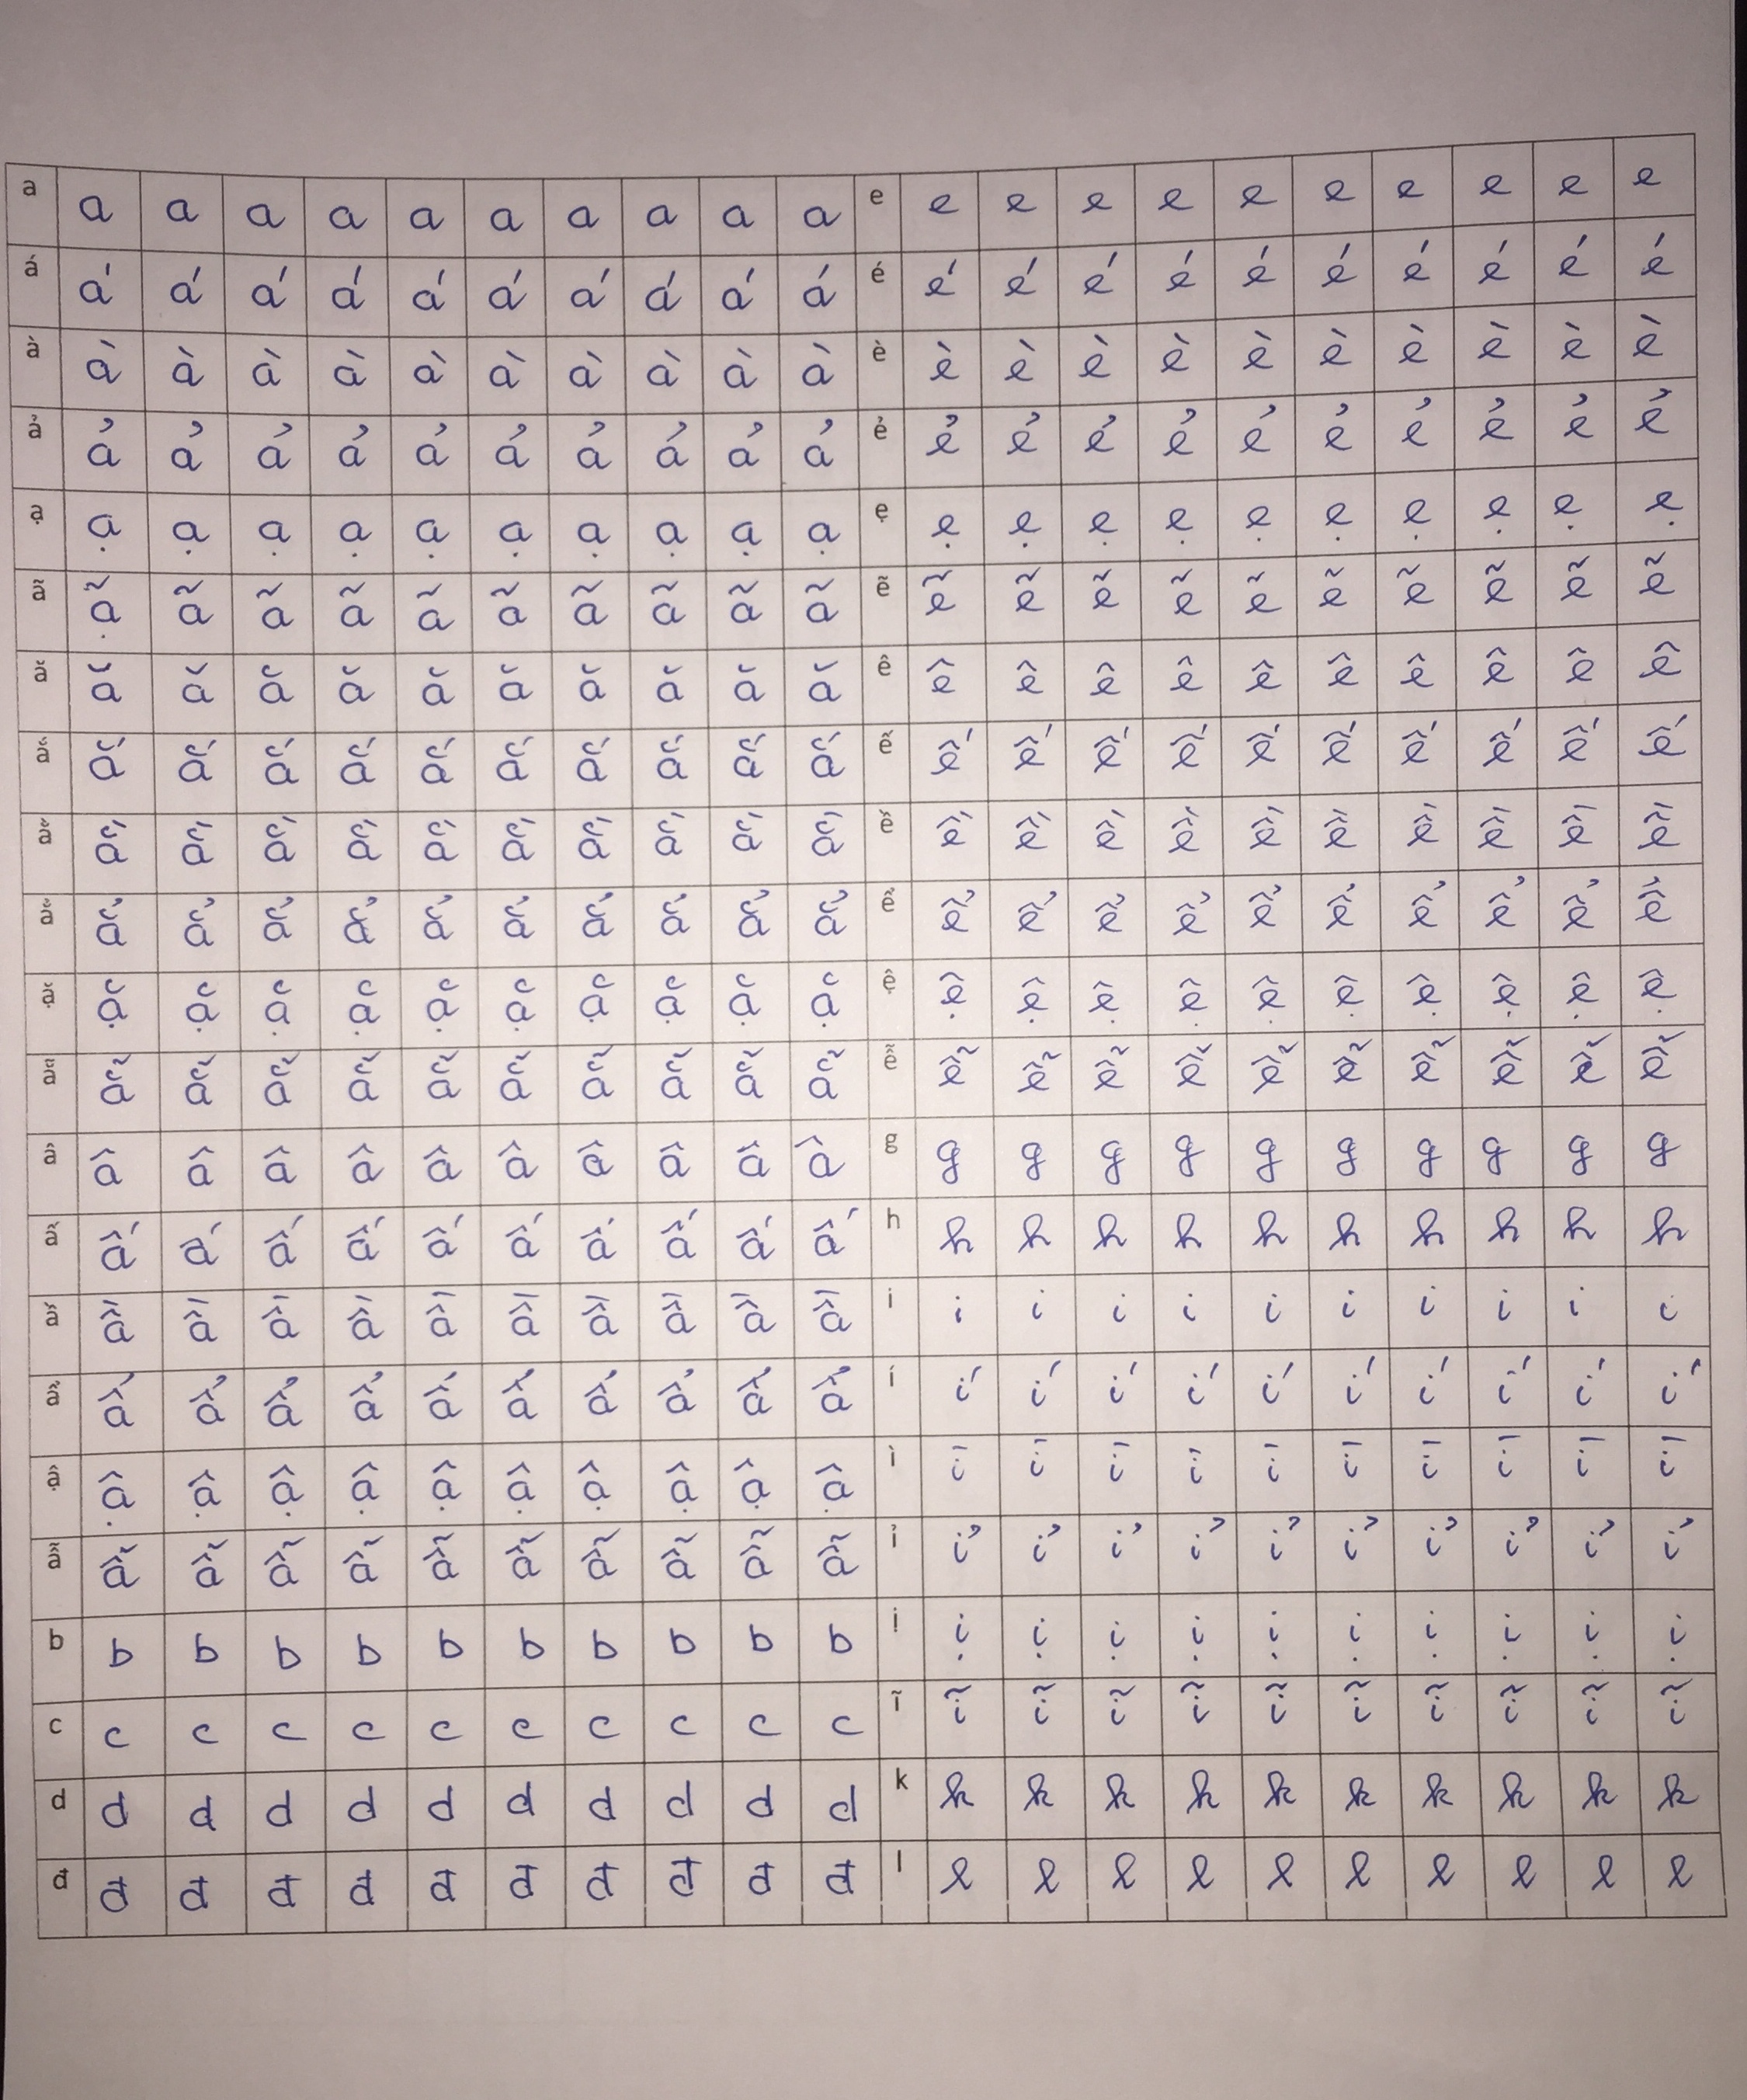 a a a a a a a a a a a e e e e e e e e e e e
á á á á á á á á á á á é é é é é é é é é é é
à à à à à à à à à à à è è è è è è è è è è è
ả ả ả ả ả ả ả ả ả ả ả ẻ ẻ ẻ ẻ ẻ ẻ ẻ ẻ ẻ ẻ ẻ
ạ ạ ạ ạ ạ ạ ạ ạ ạ ạ ạ ẹ ẹ ẹ ẹ ẹ ẹ ẹ ẹ ẹ ẹ ẹ
ã ã ã ã ã ã ã ã ã ã ã ẽ ẽ ẽ ẽ ẽ ẽ ẽ ẽ ẽ ẽ ẽ
ă ă ă ă ă ă ă ă ă ă ă ê ê ê ê ê ê ê ê ê ê ê
ắ ắ ắ ắ ắ ắ ắ ắ ắ ắ ắ ế ế ế ế ế ế ế ế ế ế ế
ằ ằ ằ ằ ằ ằ ằ ằ ằ ằ ằ ề ề ề ề ề ề ề ề ề ề ề
ẳ ẳ ẳ ẳ ẳ ẳ ẳ ẳ ẳ ẳ ẳ ể ể ể ể ể ể ể ể ể ể ể
ặ ặ ặ ặ ặ ặ ặ ặ ặ ặ ặ ệ ệ ệ ệ ệ ệ ệ ệ ệ ệ ệ
ẵ ẵ ẵ ẵ ẵ ẵ ẵ ẵ ẵ ẵ ẵ ễ ễ ễ ễ ễ ễ ễ ễ ễ ễ ễ
â â â â â â â â â â â g g g g g g g g g g g
ấ ấ ấ ấ ấ ấ ấ ấ ấ ấ ấ h h h h h h h h h h h
ầ ầ ầ ầ ầ ầ ầ ầ ầ ầ ầ i i i i i i i i i i i
ẩ ẩ ẩ ẩ ẩ ẩ ẩ ẩ ẩ ẩ ẩ í í í í í í í í í í í
ậ ậ ậ ậ ậ ậ ậ ậ ậ ậ ậ ì ì ì ì ì ì ì ì ì ì ì
ẫ ẫ ẫ ẫ ẫ ẫ ẫ ẫ ẫ ẫ ẫ ỉ ỉ ỉ ỉ ỉ ỉ ỉ ỉ ỉ ỉ ỉ
b b b b b b b b b b b ị ị ị ị ị ị ị ị ị ị ị
c c c c c c c c c c c ĩ ĩ ĩ ĩ ĩ ĩ ĩ ĩ ĩ ĩ ĩ
d d d d d d d d d d d k k k k k k k k k k k
đ đ đ đ đ đ đ đ đ đ đ l l l l l l l l l l l